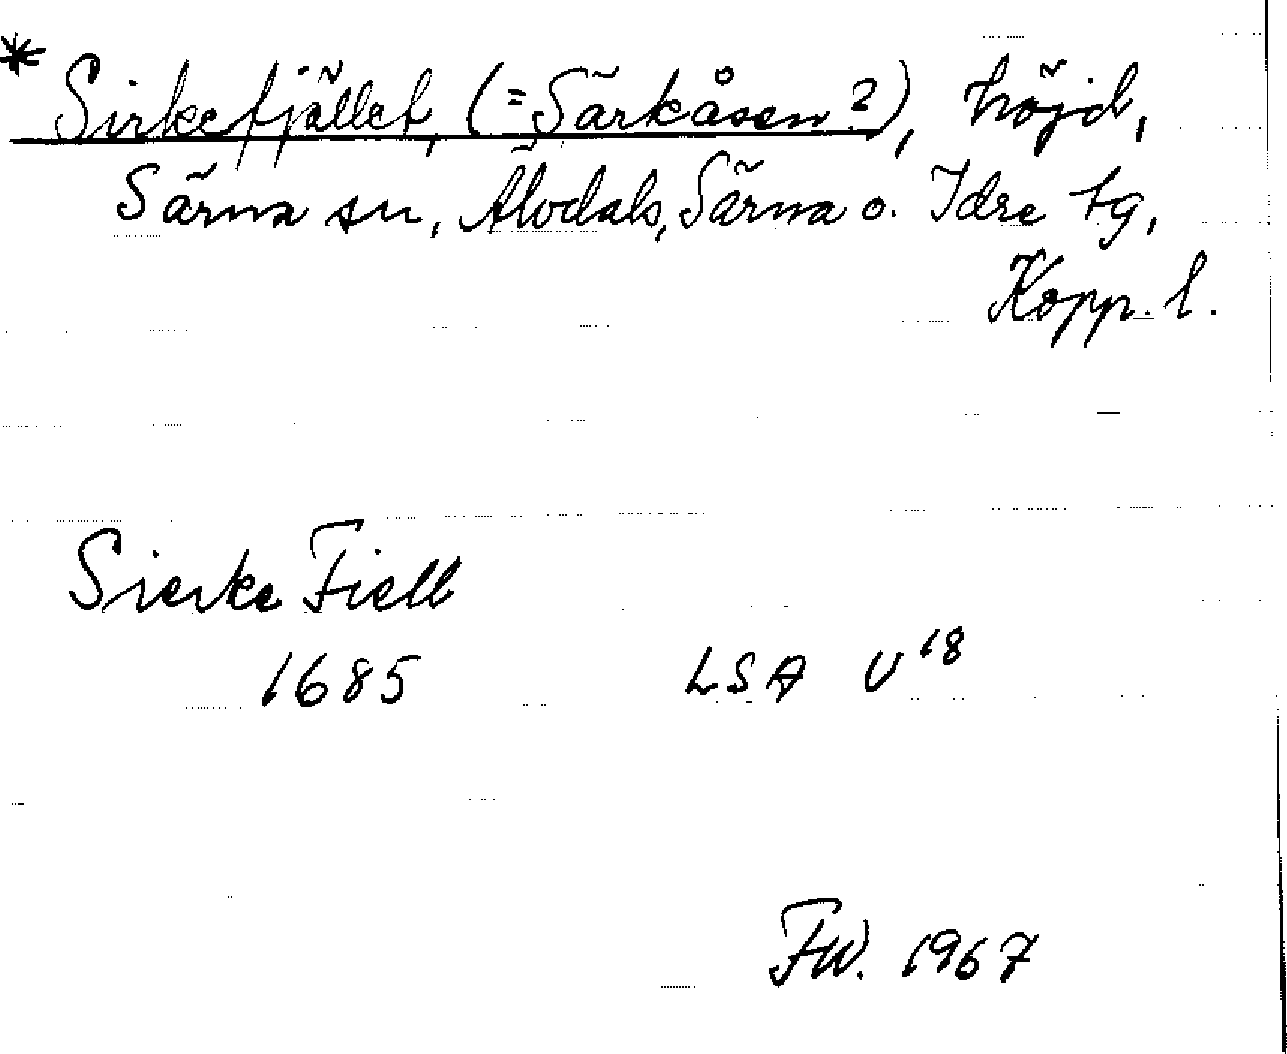 * Sirkefjället, (=Särkåsen?), höjd,
Särna sn, Älvdals, Särna o. Idre tg,
Kopp. l.
Sierke Fiell
1685 LSA U 18
FW. 1967